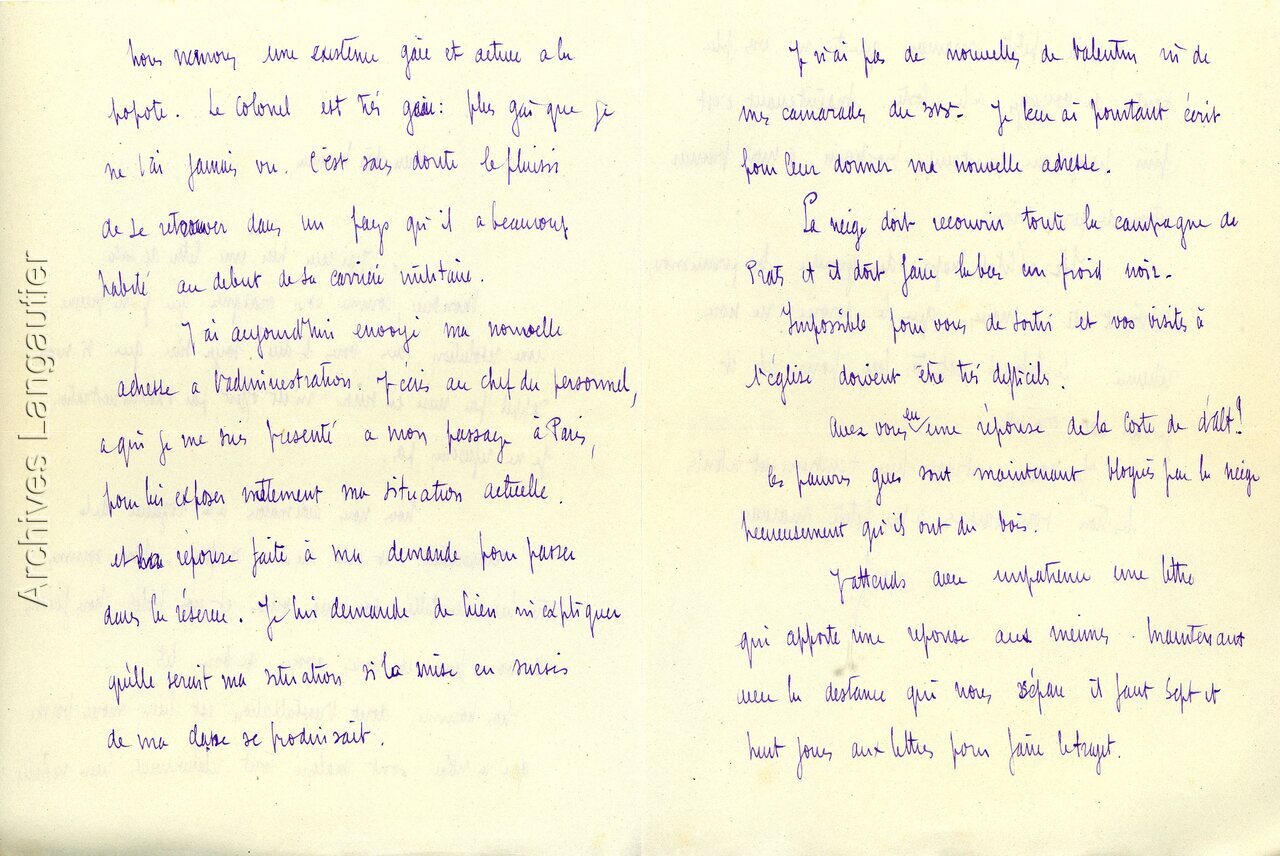 Nous menons une existence gaie et active a la
popote. Le Colonel est très gai: plus gai que je
ne l'ai jamais vu. C'est sans doute le plaisir
de se retrouver dans un pays qu'il a beaucoup
habité au debut de sa carrière militaire.
J'ai aujourd'hui envoyé ma nouvelle
adresse a l'administration. J'écris au chef du personnel,
a qui je me suis presenté a mon passage à Paris,
pour lui exposer nettement ma situation actuelle.
et la réponse faite à ma demande pour passer
dans la réserve. Je lui demande de bien m'expliquer
qu'elle serait ma situation si la mise en sursis
de ma classe se produisait.
Je n'ai pas de nouvelles de Valentin ni de
mes camarades du Je leur ai pourtant écrit
pour leur donner ma nouvelle adresse.
La neige doit recouvrir toute la campagne de
Prats et il doit faire la bas un froid noir.
Impossible pour vous de sortir et vos visites à
l'église doivent être très difficiles.
Avez vous eu une réponse de la Coste de d'alt!
Les pauvres gens sont maintenant bloqués par la neige
heureusement qu'ils ont du bois.
J'attends avec impatience une lettre
qui apporte une reponse aux miennes. Maintenant
avec la distance qui nous sépare il faut sept et
huit jours aux lettres pour faire le trajet.
Archives Langautier